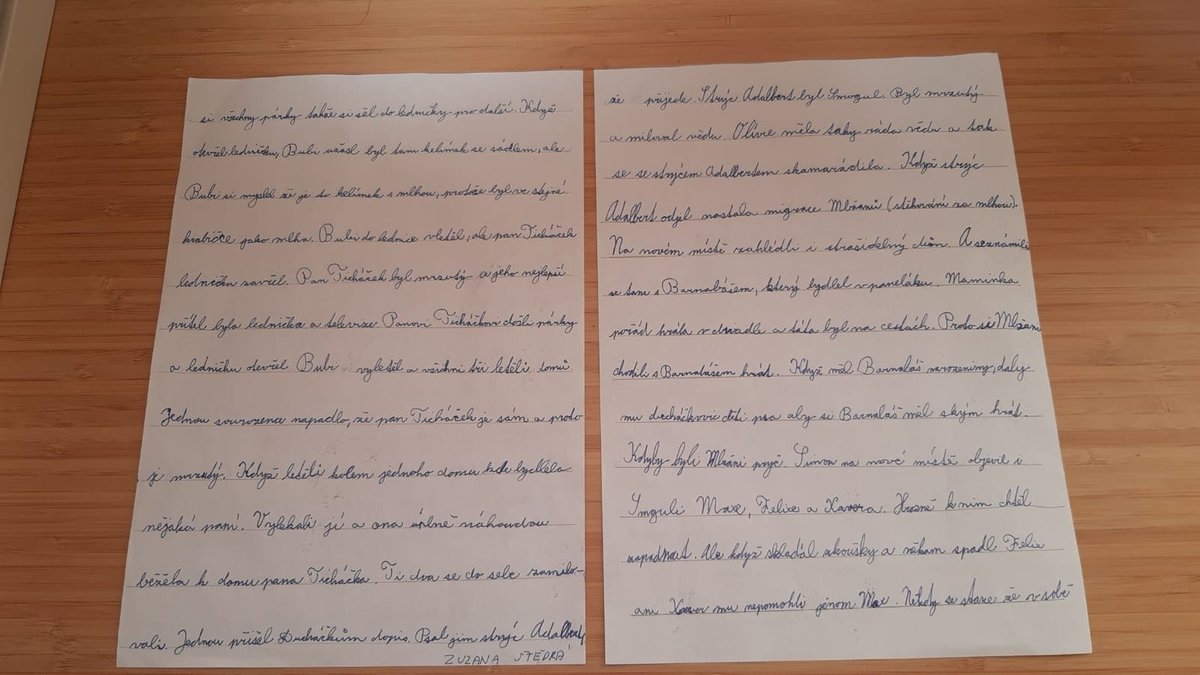 si všechny párky takže si šel do ledničky pro další. Když
otevřel ledničku, Bubi užasl byl tam kelímek se sádlem, ale
Bubi si myslel že je to kelímek s mlhou, protože byl ve stejné
krabičce jako mlha. Bubi do lednice vletěl, ale pan Ticháček
ledničku zavřel. Pan Ticháček byl mrzutý a jeho nejlepší
přítel byla lednička a televize. Panovi Ticháčkovi došli párky
a ledničku otevřel. Bubi vyletěl a všichni tři letěli domů.
Jednou sourozence napadlo, že pan Ticháček je sám a proto
je mrzutý. Když letěli kolem jednoho domu kde bydlela
nějaká paní. Vylekali jí a ona úplně náhoudou
běžela k domu pana Ticháčka. Ti dva se do sebe zamilo-
vali. Jednou přišel Ducháčkům dopis. Psal jim strýc Adalbert,
ZUZANA ŠTĚDRÁ
že přijede. Strýc Adalbert byl Smogul. Byl mrzutý
a miloval vědu. Olívie měla taky ráda vědu a tak
se se strýčem Adalbertem skamarádila. Když strýc
Adalbert odjel nastala migrace Mlžanů (stěhování za mlhou).
Na novém místě zahlédli i strašidelný dům. A seznámili
se tam s Barnabášem, který bydlel v paneláku. Maminka
pořád hrála v divadle a táta byl na cestách. Proto si Mlžani
chodili s Barnabášem hrát. Když měl Barnabáš narozeniny, daly
mu ducháčkovic děti psa aby si Barnabáš měl s kým hrát.
Kdyby byli Mlžáni pryč. Simon na nové místě objevil i
Smguli Maxe, Felixe a Xavera. Hrozně k nim chtěl
zapadnout. Ale když skládal zkoušky a někam spadl Felix
ani Xavor mu nepomohli jenom Max. Někdy se stane že v sobě